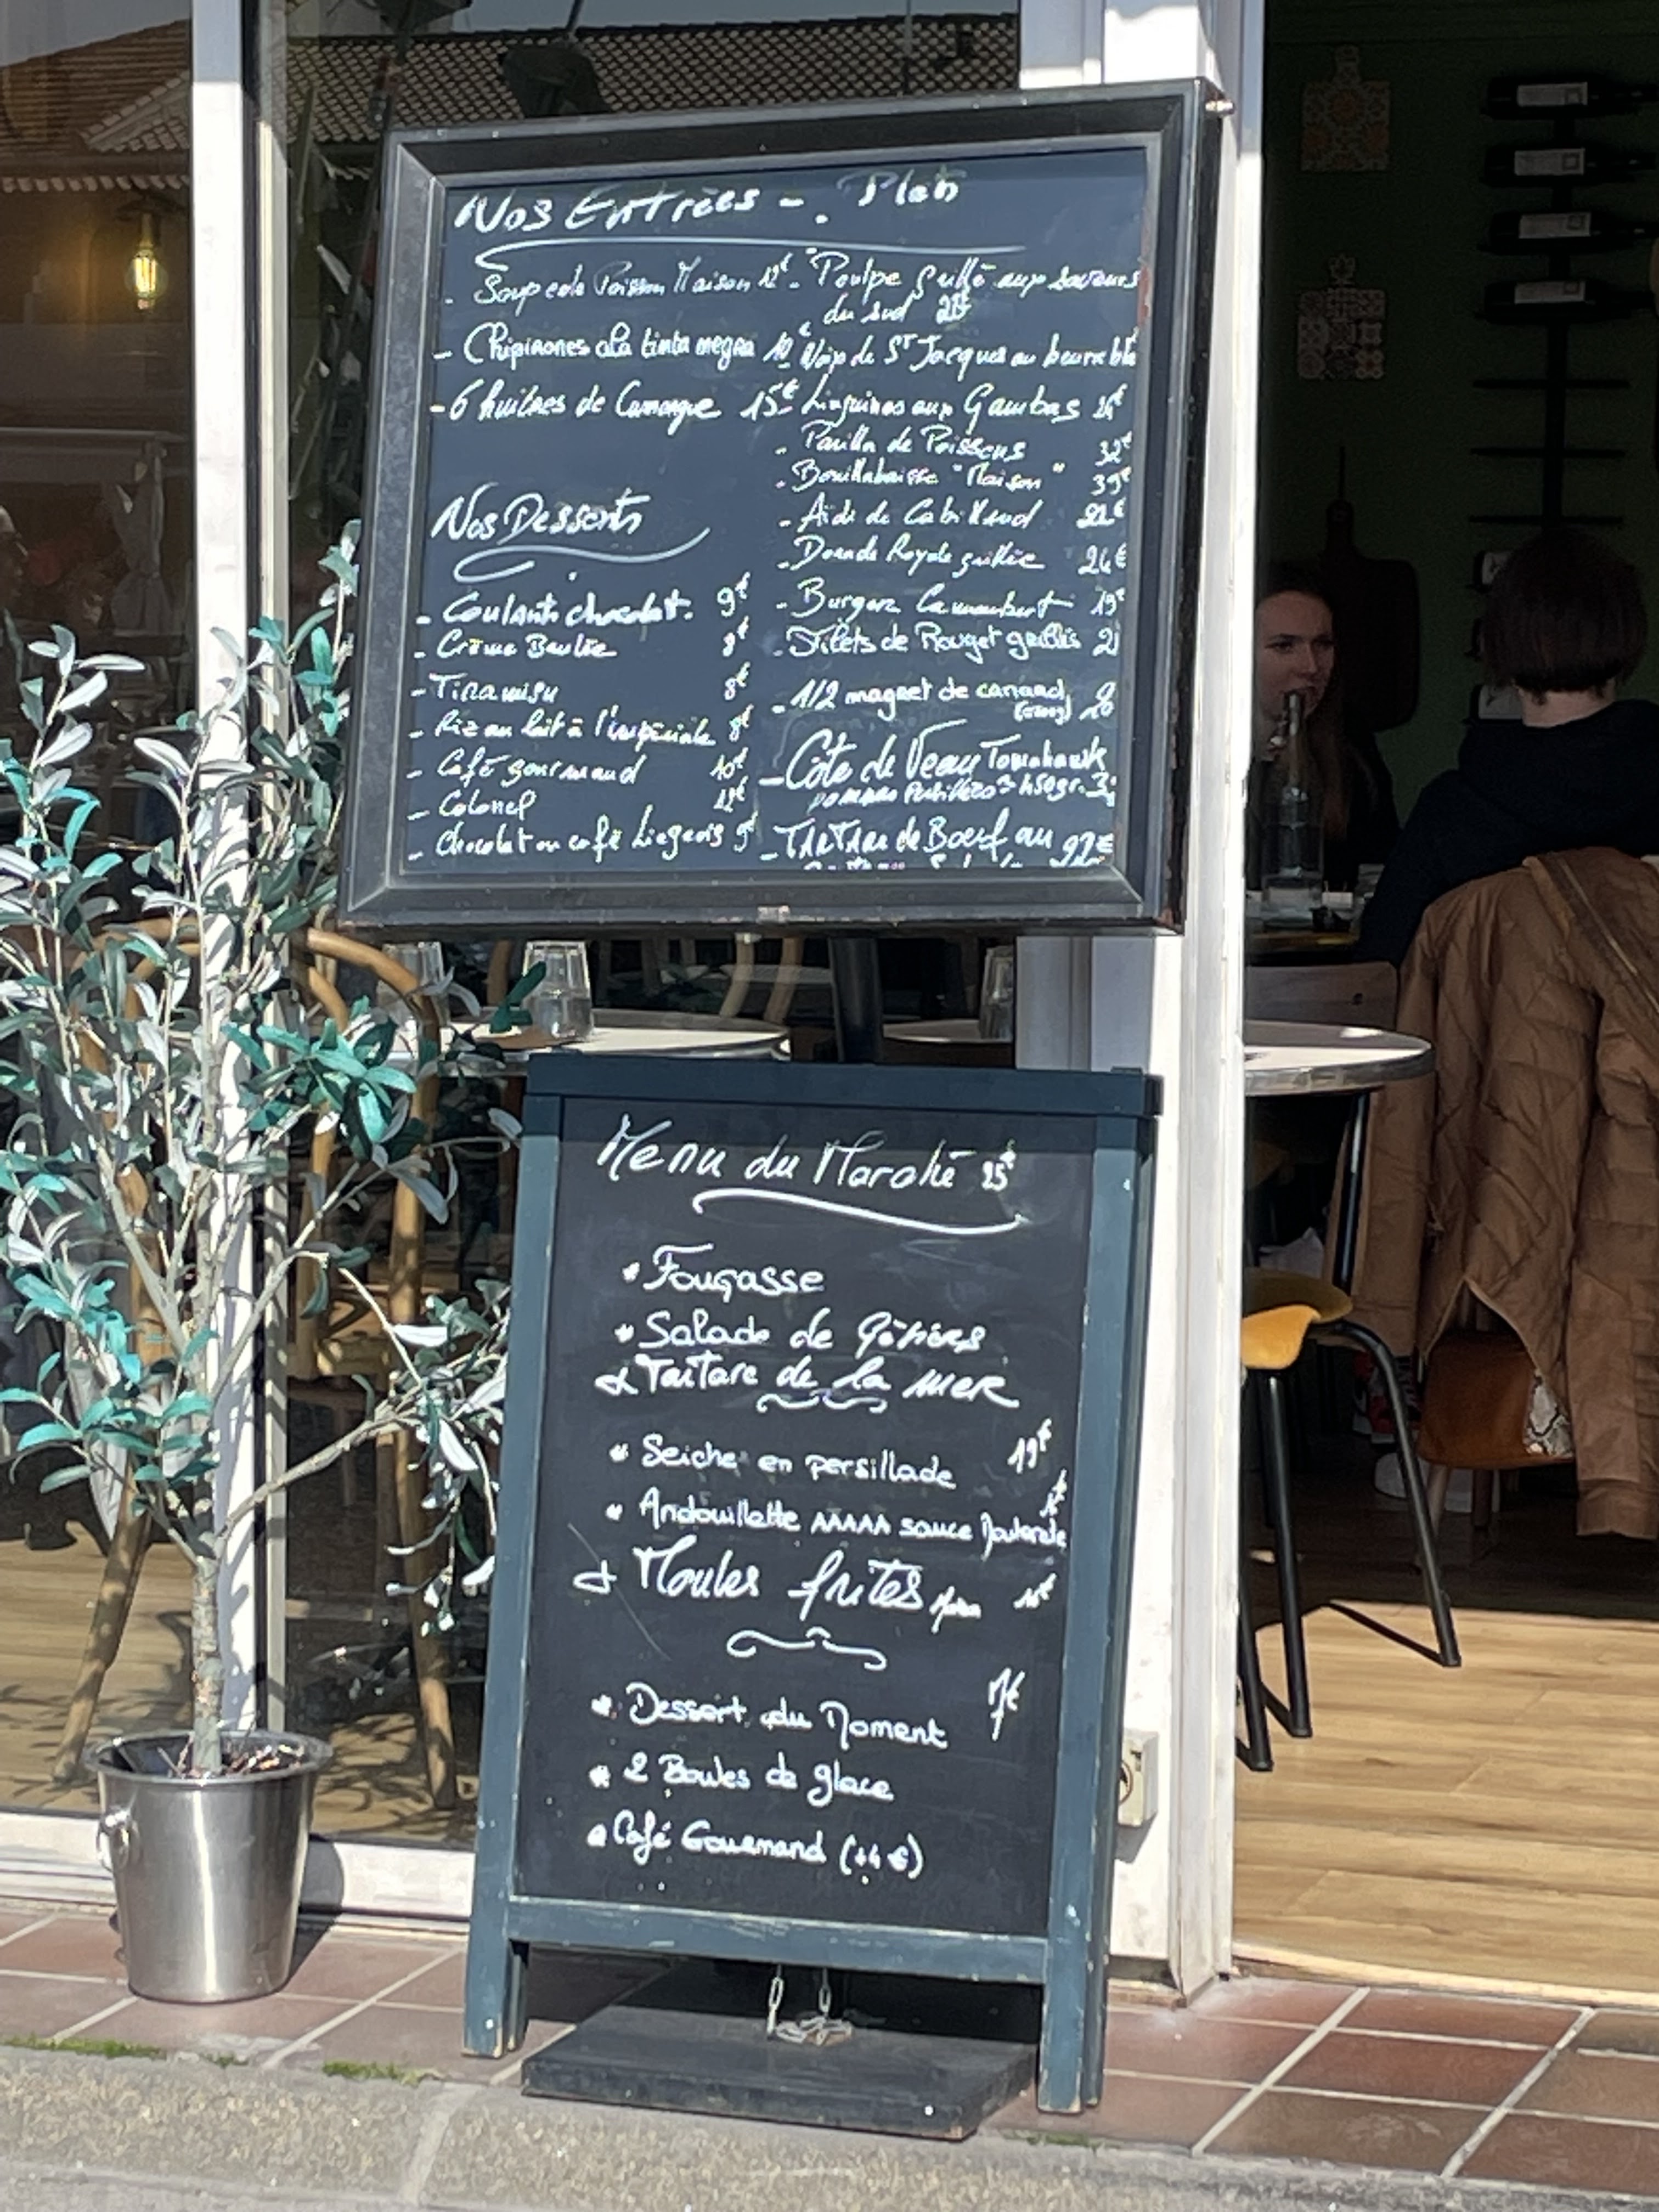 Nos Entrées - . Plats
- Soupe de Poisson Maison 12€
- Chipirones a la tinta negra 10€
- 6 huîtres de Camargue 15€
Nos Desserts
- Coulant chocolat. 9€
- Crème Brulée 8€
- Tiramisu 8€
- Riz au lait à l'impériale 8€
- Café gourmand 10€
- Colonel 12€
- Chocolat ou café Liegeois 9€
- Poulpe grillé aux saveurs
du sud
Noix de St Jacques au beurre bla
- Linguines aux Gambas 24€
- Paella de Poissons 32€
- Bouillabaisse "Maison" 39€
- Aïoli de Cabillaud 22€
- Dorade Royale grillée 24€
- Burger Camembert 19€
- Filets de Rouget grillés 21
- 1/2 magret de canard
- Côte de Veau Tomahawk
450gr.
- Tartare de Boeuf au 22€
Menu du Marché 25€
* Fougasse
* Salade de Gésiers
* Tartare de la mer
* Seiche en persillade 19€
* Andouillette AAAAA sauce Moutarde
* Moules frites
* Dessert du Moment 7€
* 2 Boules de glace
* Café Gourmand (+4€)